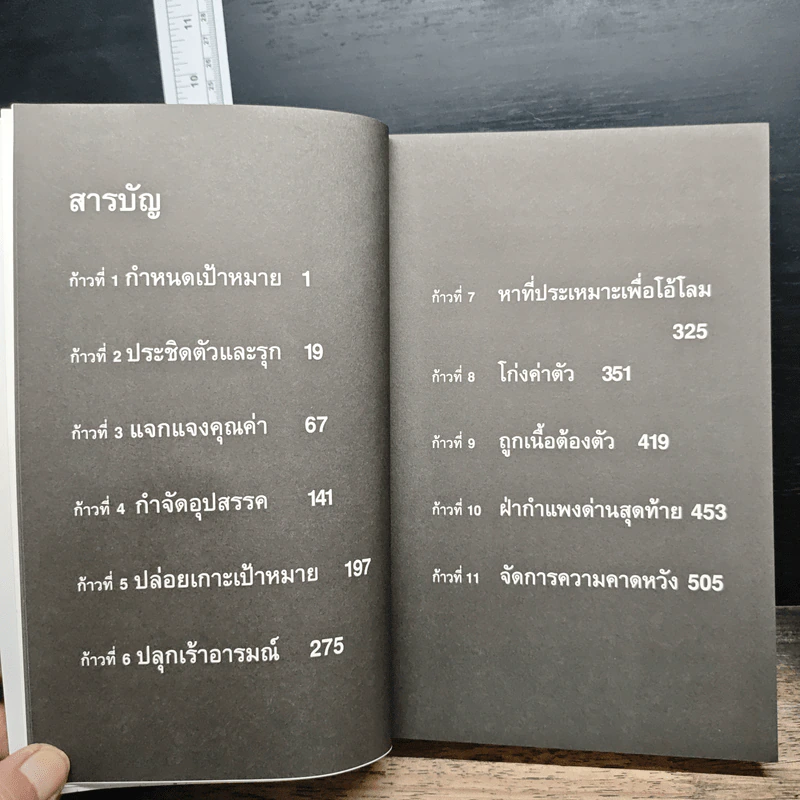 สารบัญ
ก้าวที่ 1 กำหนดเป้าหมาย 1
ก้าวที่ 2 ประชิดตัวและรุก 19
ก้าวที่ 3 แจกแจงคุณค่า 67
ก้าวที่ 4 กำจัดอุปสรรค 141
ก้าวที่ 5 ปล่อยเกาะเป้าหมาย 197
ก้าวที่ 6 ปลุกเร้าอารมณ์ 275
ก้าวที่ 7 หาที่ประเหมาะเพื่อโอ้โลม
325
ก้าวที่ 8 โก่งค่าตัว 351
ก้าวที่ 9 ถูกเนื้อต้องตัว 419
ก้าวที่ 10 ฝ่ากำแพงด่านสุดท้าย 453
ก้าวที่ 11 จัดการความคาดหวัง 505
11
10